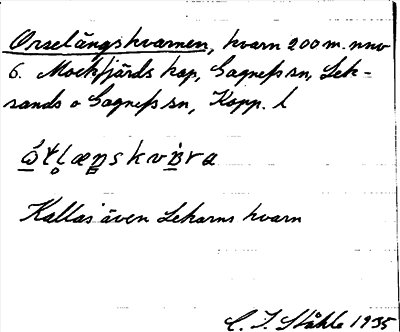 Orselängskvarnen, kvarn 200 m. nnv
6. Mockfjärds kap, Gagnefs sn, Lek-
sands o Gagnefs sn, Kopp. l
Kallas även Lekarns kvarn
C. I. Ståhle 1935